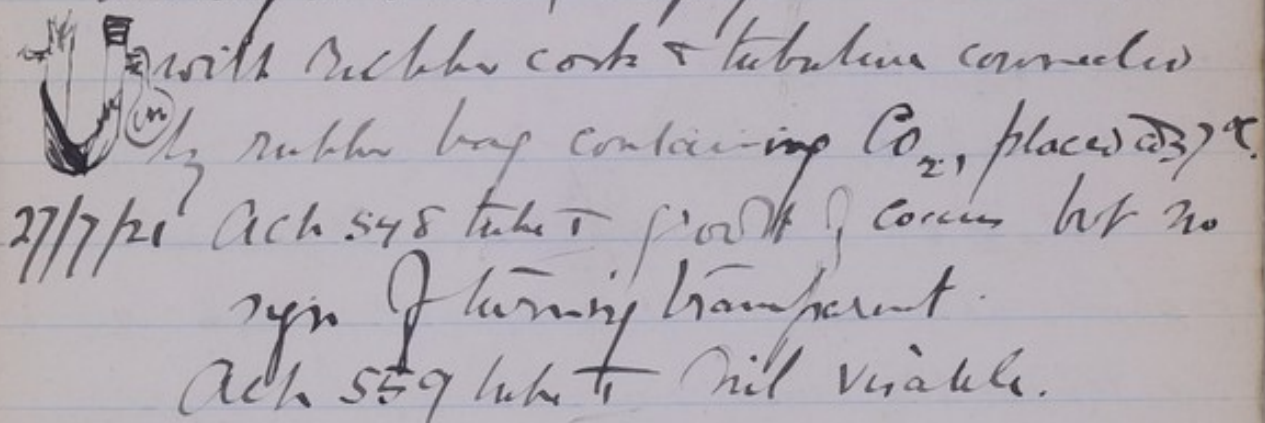 with rubber cork & tubulure connected
by rubber bag containing Co2, placed at 37°C.
27/7/21 Ach 548 tube T growth of coccus but no
sign of turning transparent.
Ach 559 tube T nil visible.